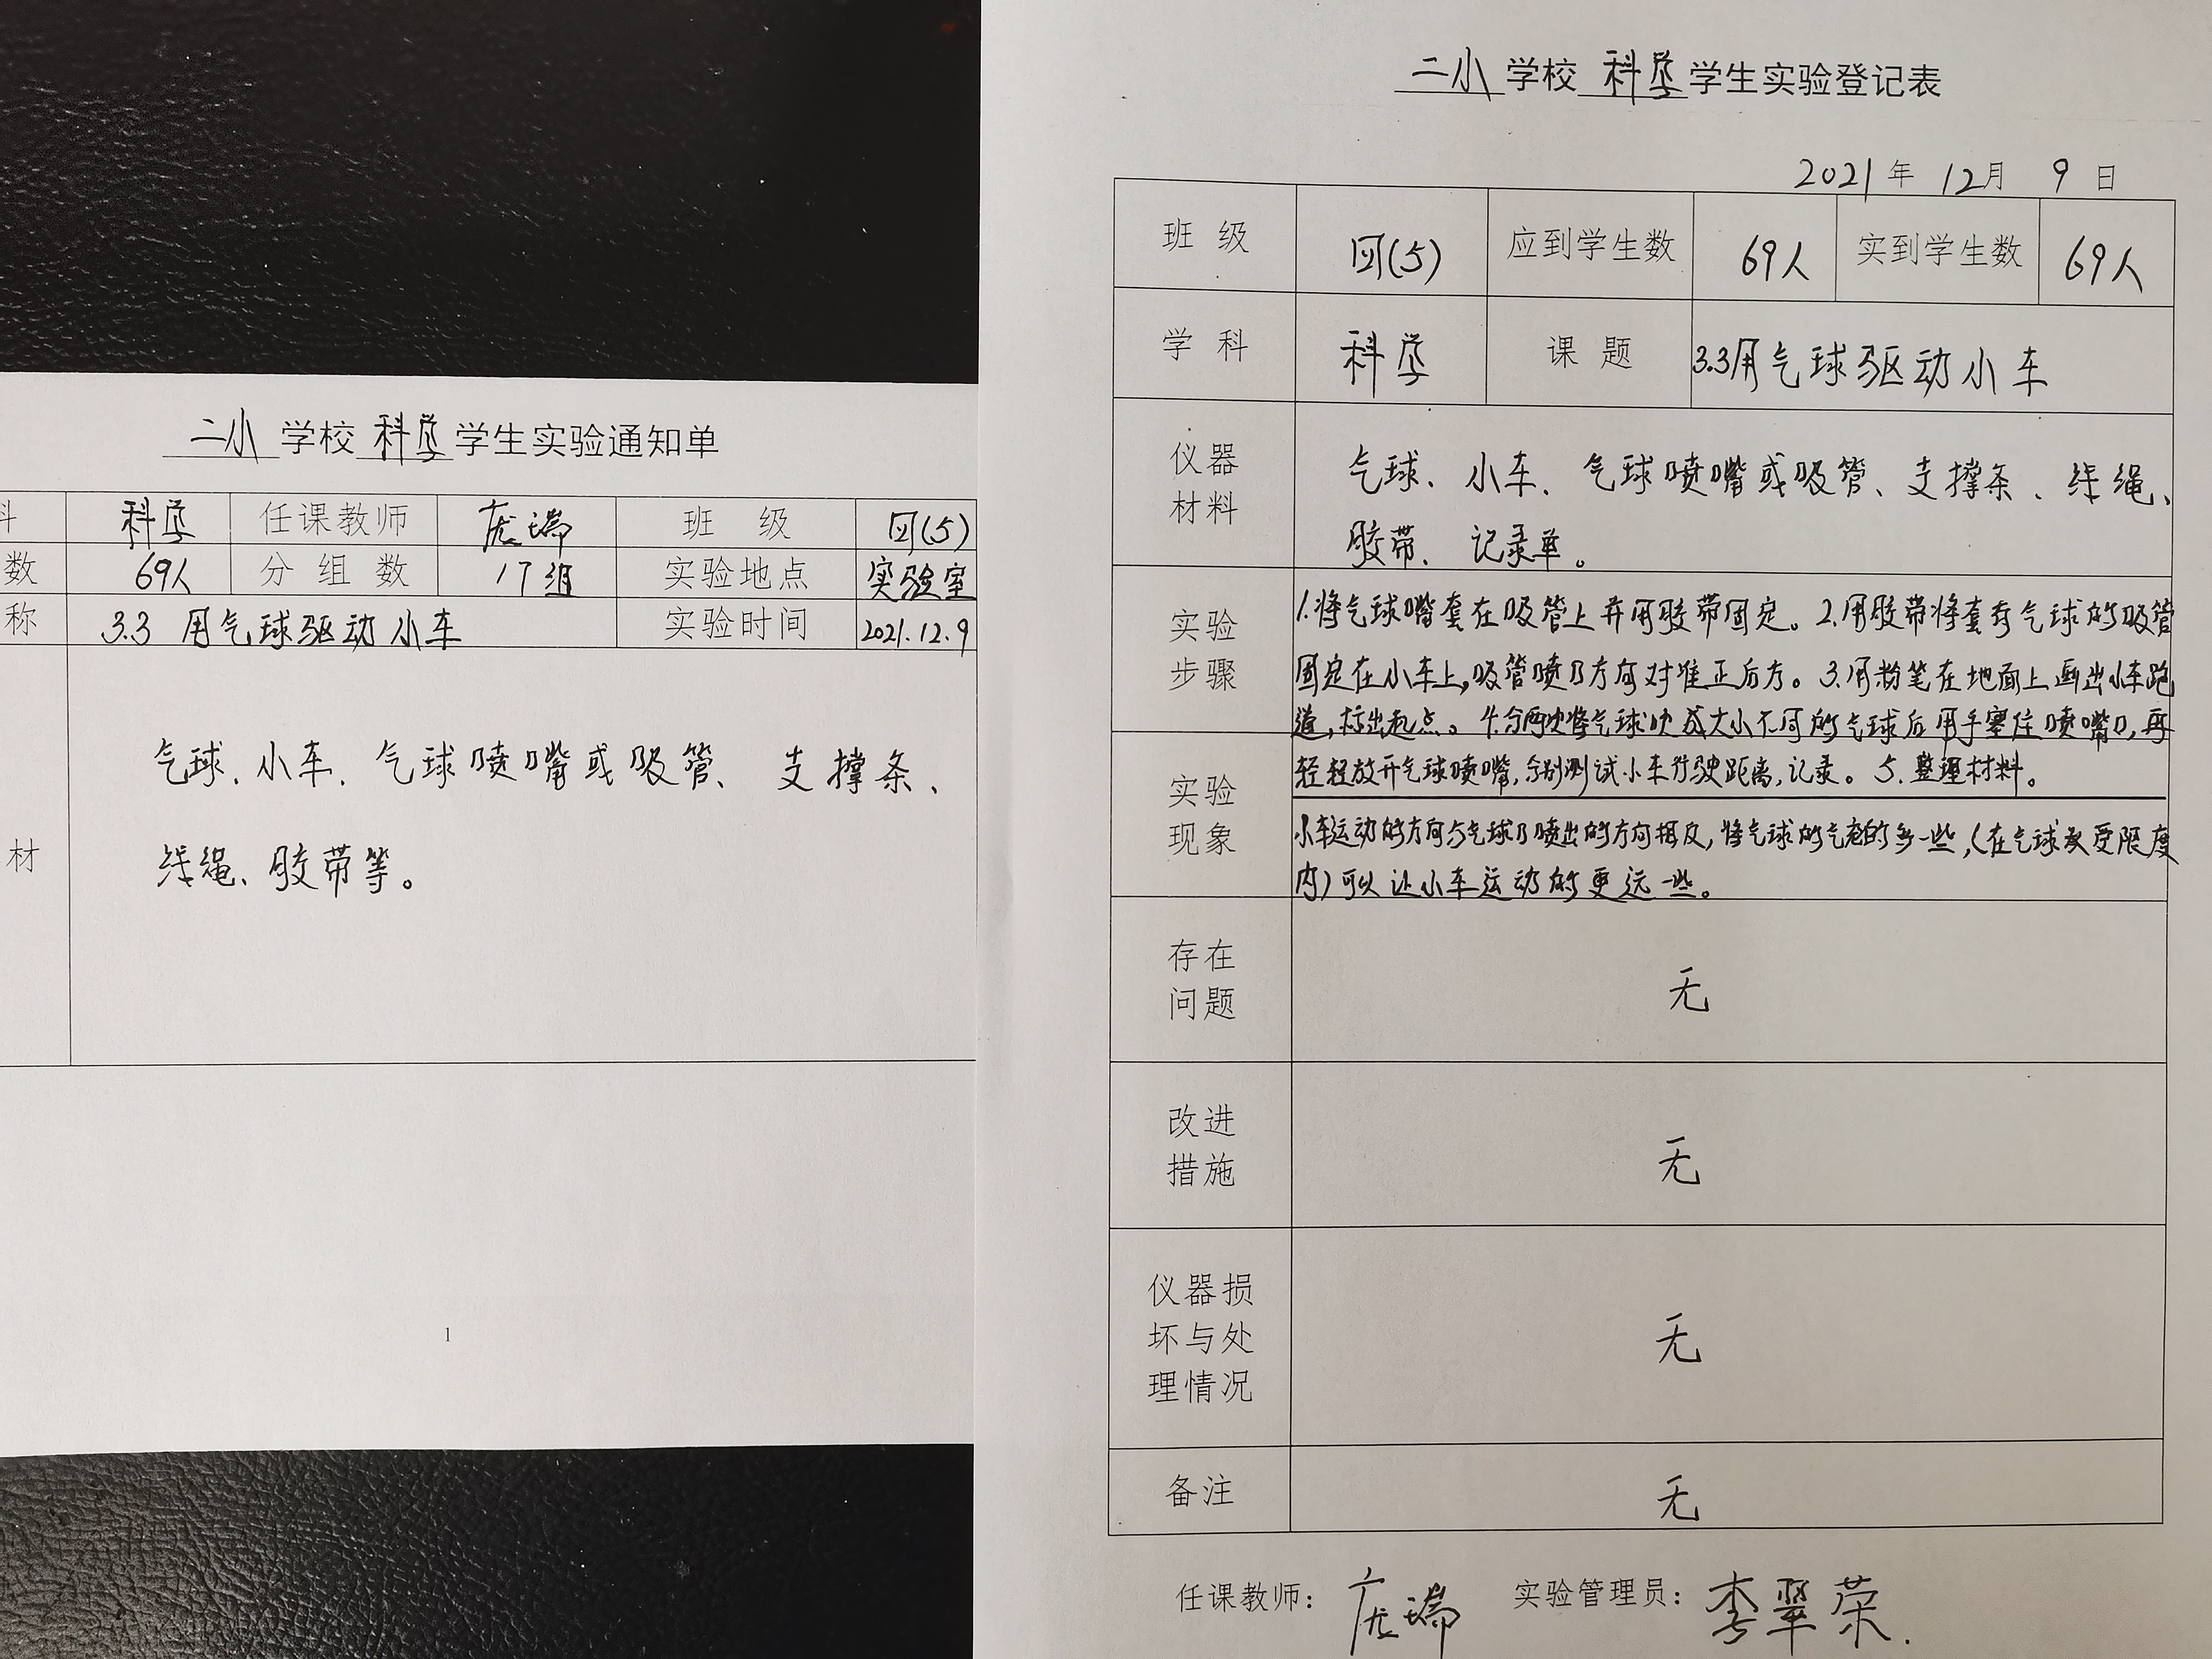 二小 学校 科学 学生实验通知单
科 科学 任课教师 庞瑞 班 级 四(5)
数 69人 分 组 数 17组 实验地点 实验室
称 3.3 用气球驱动小车 实验时间 2021.12.9
材 气球、小车、气球喷嘴或吸管、支撑条、
线绳、胶带等。
1
二小 学校 科学 学生实验登记表
2021 年 12 月 9 日
班 级 四(5) 应到学生数 69人 实到学生数 69人
学 科 科学 课 题 3.3用气球驱动小车
仪器材料
气球、小车、气球喷嘴或吸管、支撑条、线绳、
胶带、记录单。
实验步骤
1.将气球嘴套在吸管上并用胶带固定。2.用胶带将套有气球的吸管
固定在小车上,吸管喷口方向对准正后方。3.用粉笔在地面上画出小车跑
道,标出起点。4.分两次将气球吹成大小不同的气球后用手塞住喷嘴口,再
轻轻放开气球喷嘴,分别测试小车行驶距离,记录。5.整理材料。
实验现象
小车运动的方向与气球口喷出的方向相反,将气球的气充的多一些,(在气球承受限度
内)可以让小车运动的更远一些。
存在问题
无
改进措施
无
仪器损坏与处理情况
无
备注 无
任课教师: 庞瑞 实验管理员: 李翠荣.